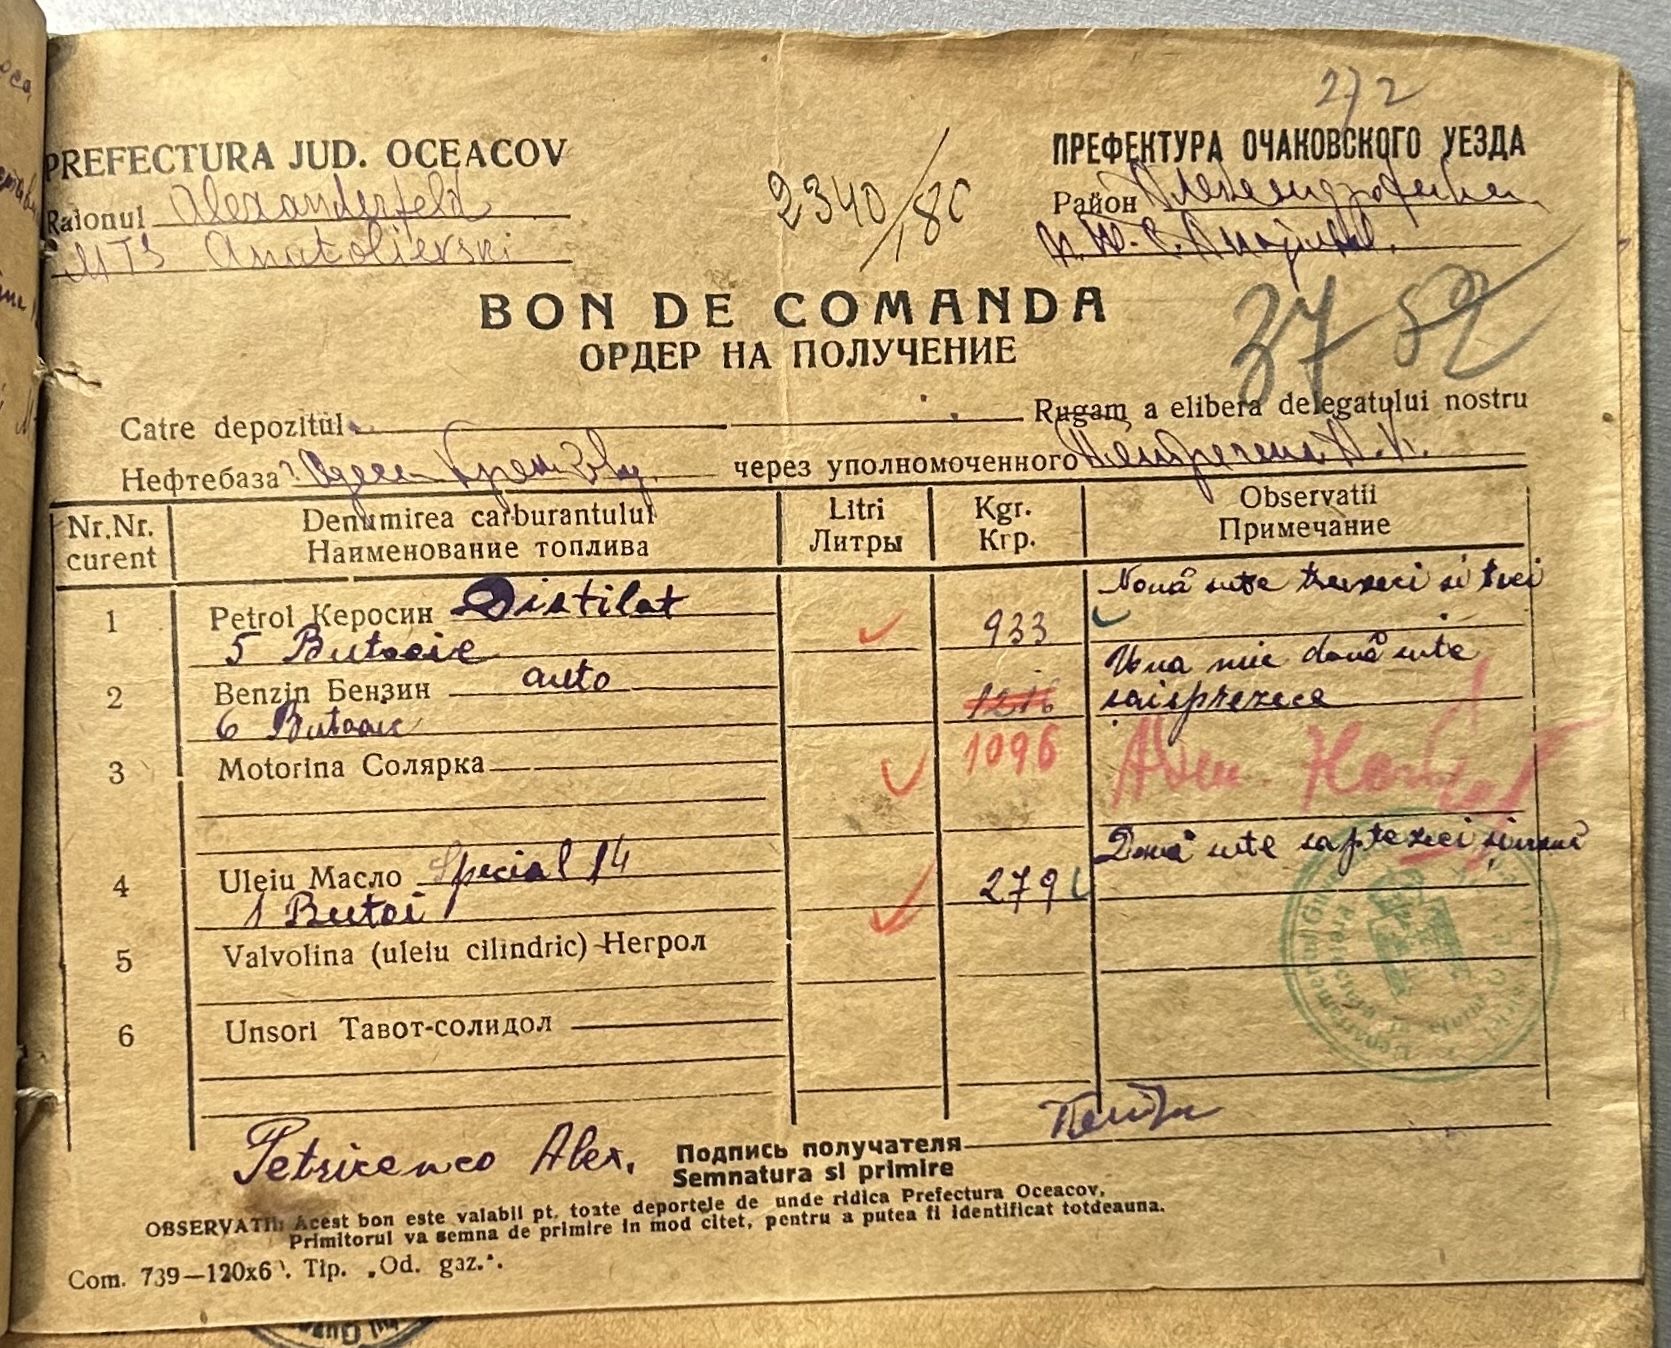 272
PREFECTURA JUD. OCEACOV
ПРЕФЕКТУРА ОЧАКОВСКОГО УЕЗДА
Raionul Alexanderfeld
Район
MTS Anatolievski
2340/180
BON DE COMANDA
ОРДЕР НА ПОЛУЧЕНИЕ
37 52
Catre depozitul Rugam a elibera delegatului nostru
Нефтебаза через уполномоченного
Nr.Nr. curent
Denumirea carburantului
Наименование топлива
Litri
Литры
Kgr.
Кгр.
Observatii
Примечание
1 Petrol Керосин Distilat 933 Nouă sute treizeci si trei
5 Butoaie
2 Benzin Бензин auto 1216 Una mie două sute
6 Butoaie saisprezece
3 Motorina Солярка 1096
4 Uleiu Масло Special 14 279 Două sute saptezeci și nouă
1 Butoi
5 Valvolina (uleiu cilindric) Негрол
6 Unsori Тавот-солидол
Petricenco Alex.
Подпись получателя
Semnatura si primire
OBSERVATII: Acest bon este valabil pt. toate deportele de unde ridica Prefectura Oceacov.
Primitorul va semna de primire in mod citet, pentru a putea fi identificat totdeauna.
Com. 739—120x6 . Tip. „Od. gaz.".